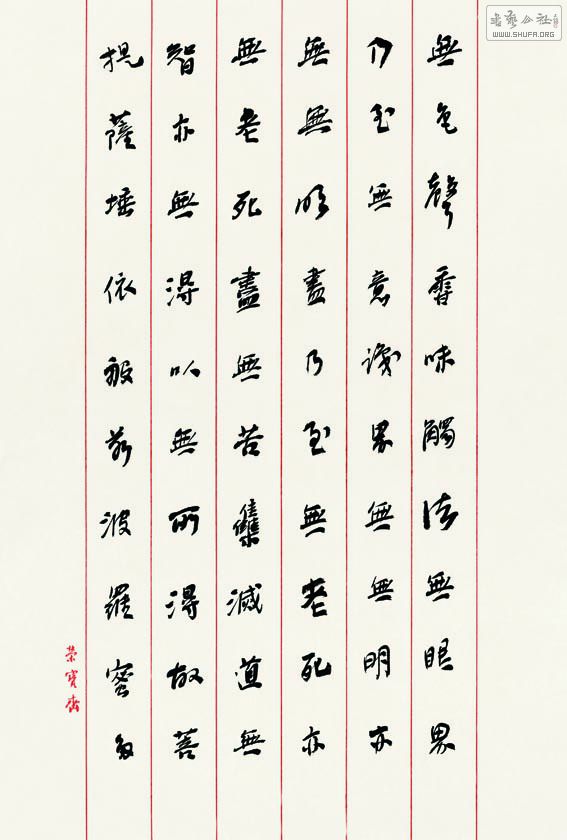 無色聲香味觸法無眼界
乃至無意識界無無明亦
無無明盡乃至無老死亦
無老死盡無苦雧滅道無
智亦無得以無所得故菩
提薩埵依般若波羅蜜多
榮寶齋
書藝公社
WWW.SHUFA.ORG